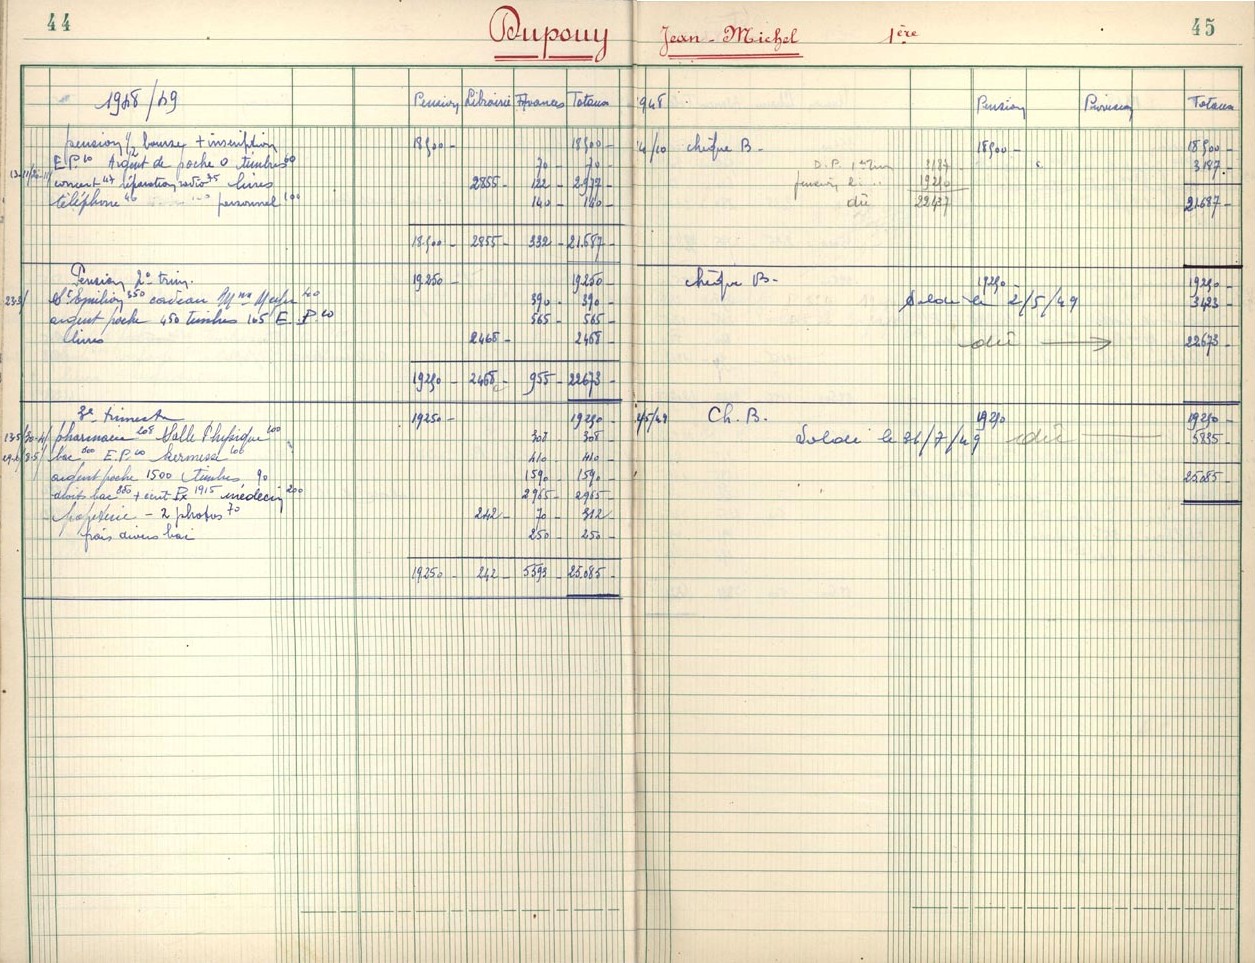 44
Dupouy
Jean-Michel 1ère
45
1948/49
Pension Librairie Avances Totaux
pension 1/2 bourse + inscription 18500 - 18500 -
E.P. 10 Argent de poche 0 timbres 60 70 - 70 -
concert 47 réparation radio 75 livres 2855 - 122 - 2977 -
téléphone personnel 100 140 - 140 -
18.500 - 2855 - 332 - 21.687 -
Pension 2e trim. 19250 - 19250 -
23.3/ St Emilion 350 cadeau Mme 40 390 - 390 -
argent poche 450 timbres 105 E.P. 10 565 - 565 -
livres 2468 - 2468 -
19250 - 2468 - 955 - 22673 -
3e trimestre 19250 - 19250 -
pharmacie 208 Salle Physique 100 308 - 308 -
bac E.P. kermesse 410 - 410 -
argent poche 1500 timbres 90 1590 - 1590 -
droits bac + écrit 1915 médecin 200 2965 - 2965 -
papeterie - 2 photos 70 242 - 70 - 312 -
frais divers bac 250 - 250 -
19250 - 242 - 5593 - 25.085 -
1948 Pension Provision Totaux
4/10 chèque B - 18500 - 18500 -
D.P. 1er Trim 3187 3187 -
pension 2e 19250
dû 22437 21687 -
chèque B - 19250 - 19250 -
Soldé le 2/5/49 3423 -
dû → 22673 -
2/5/49 Ch. B. 19250 19250 -
Soldé le 31/7/49 dû 5835 -
25.085 -